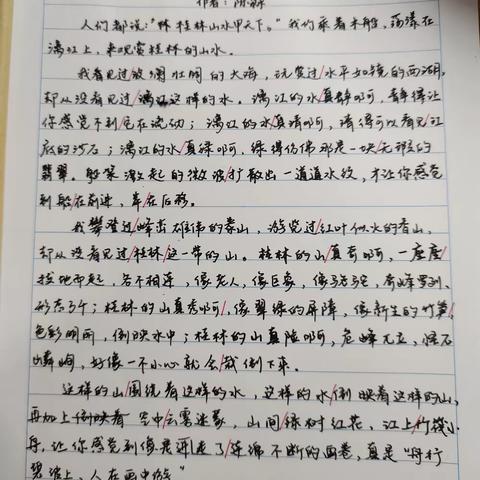 作者:陈淼
人们都说:"桂林山水甲天下。"我们乘着木船,荡漾在
漓江上,来观赏桂林的山水。
我看见过波澜壮阔的大海,玩赏过水平如镜的西湖,
却从没看见过漓江这样的水。漓江的水真静啊,静得让
你感觉不到它在流动;漓江的水真清啊,清得可以看见江
底的沙石;漓江的水真绿啊,绿得仿佛那是一块无瑕的
翡翠。船桨激起的微波扩散出一道道水纹,才让你感觉
到船在前进,岸在后移。
我攀登过峰峦雄伟的泰山,游览过红叶似火的香山,
却从没看见过桂林这一带的山。桂林的山真奇啊,一座座
拔地而起,各不相连,像老人,像巨象,像骆驼,奇峰罗列,
形态万千;桂林的山真秀啊,像翠绿的屏障,像新生的竹笋,
色彩明丽,倒映水中;桂林的山真险啊,危峰兀立,怪石
嶙峋,好像一不小心就会栽倒下来。
这样的山围绕着这样的水,这样的水倒映着这样的山,
再加上空中云雾迷蒙,山间绿树红花,江上竹筏小
舟,让你感觉到像是走进了连绵不断的画卷,真是"舟行
碧波上,人在画中游"